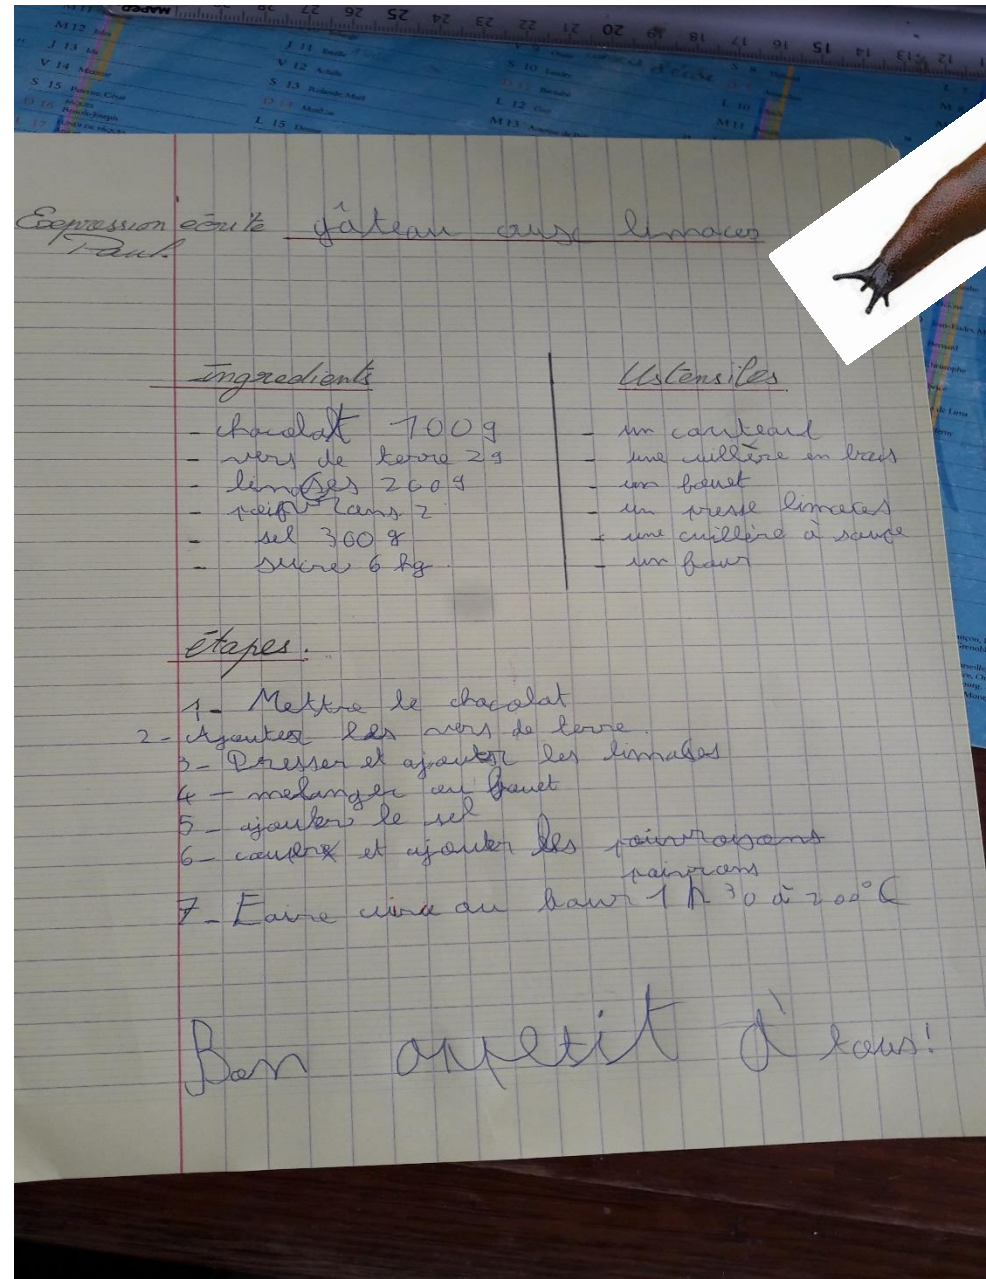 MAPED 27 26 25 24 23 22 21 20 19 18 17 16 15 14 13 12
M 12
J 13
V 14
S 15
J 11
V 12
S 13
L 15
S 10
L 12
M 13
L 10
M 11
Expression écrite
Paul.
gâteau aux limaces
ingredients
- chocolat 100g
- vers de terre 2g
- limases 200g
- poivrons 2
- sel 300 g
- sucre 6 kg
Ustensiles
- un couteau
- une cuillère en bois
- un fouet
- un presse limaces
- une cuillère à sauce
- un four
étapes.
1- Mettre le chocolat
2- Ajouter les vers de terre.
3- Presser et ajouter les limaces
4- melanger au fouet
5- ajouter le sel
6- couper et ajouter les poivroisons
poivrons
7- Faire cuire au four 1 h 30 à 200°C
Bon apetit à tous!